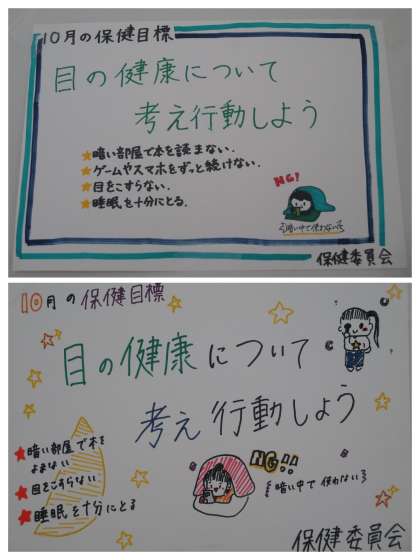 10月の保健目標
目の健康について
考え行動しよう
★暗い部屋で本を読まない.
★ゲームやスマホをずっと続けない.
★目をこすらない.
★睡眠を十分にとる.
NG!
暗い中で使わない
保健委員会
10月の保健目標
目の健康について
考え行動しよう
★暗い部屋で本を
よまない
★目をこすらない
★睡眠を十分にとる
NG!!
暗い中で使わない
保健委員会